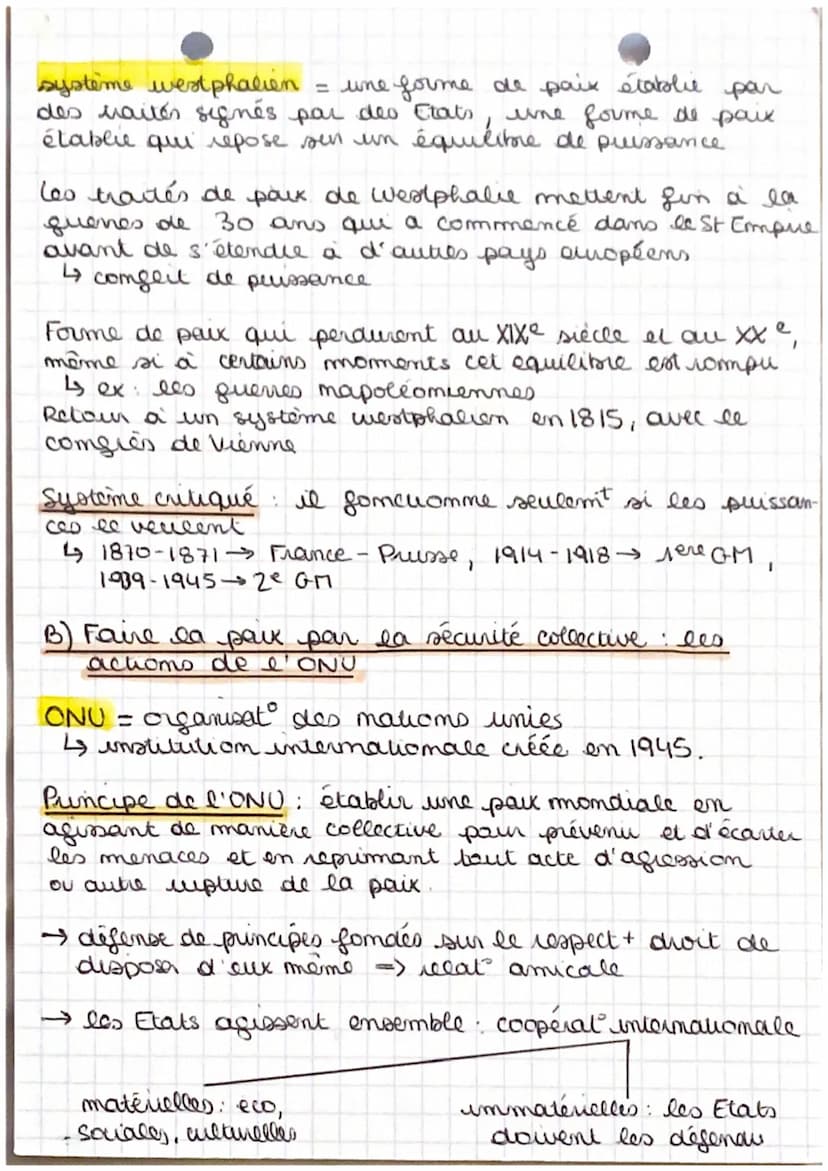 système westphalien = une forme de paix établie par
des traités signés par des Etats, une forme de paix
établie qui repose sur un équilibre de puissance
Les traités de paix de Westphalie mettent fin à la
guerres de 30 ans qui a commencé dans le St Empire
avant de s'étendre à d'autres pays européens
↳ conflit de puissance
Forme de paix qui perdurent au XIXe siècle et au XXe,
même si à certains moments cet equilibre est rompu
↳ ex : les guerres napoléoniennes
Retour à un système westphalien en 1815, avec le
congrès de Vienne
Système critiqué : il fonctionne seulemt si les puissan-
ces le veulent
↳ 1870-1871 → France - Prusse, 1914-1918 → 1ere GM,
1939-1945 → 2e GM
B) Faire la paix par la sécurité collective : les
actions de l'ONU
ONU = organisat° des nations unies
↳ institution internationale créée en 1945.
Principe de l'ONU : établir une paix mondiale en
agissant de manière collective pour prévenir et d'écarter
les menaces et en reprimant tout acte d'agression
ou autre rupture de la paix.
→ défense de principes fondés sur le respect + droit de
disposer d'eux même => relat° amicale
→ les Etats agissent ensemble : coopérat° internationale
matérielles : eco, immatérielles : les Etats
sociales, culturelles doivent les défendre